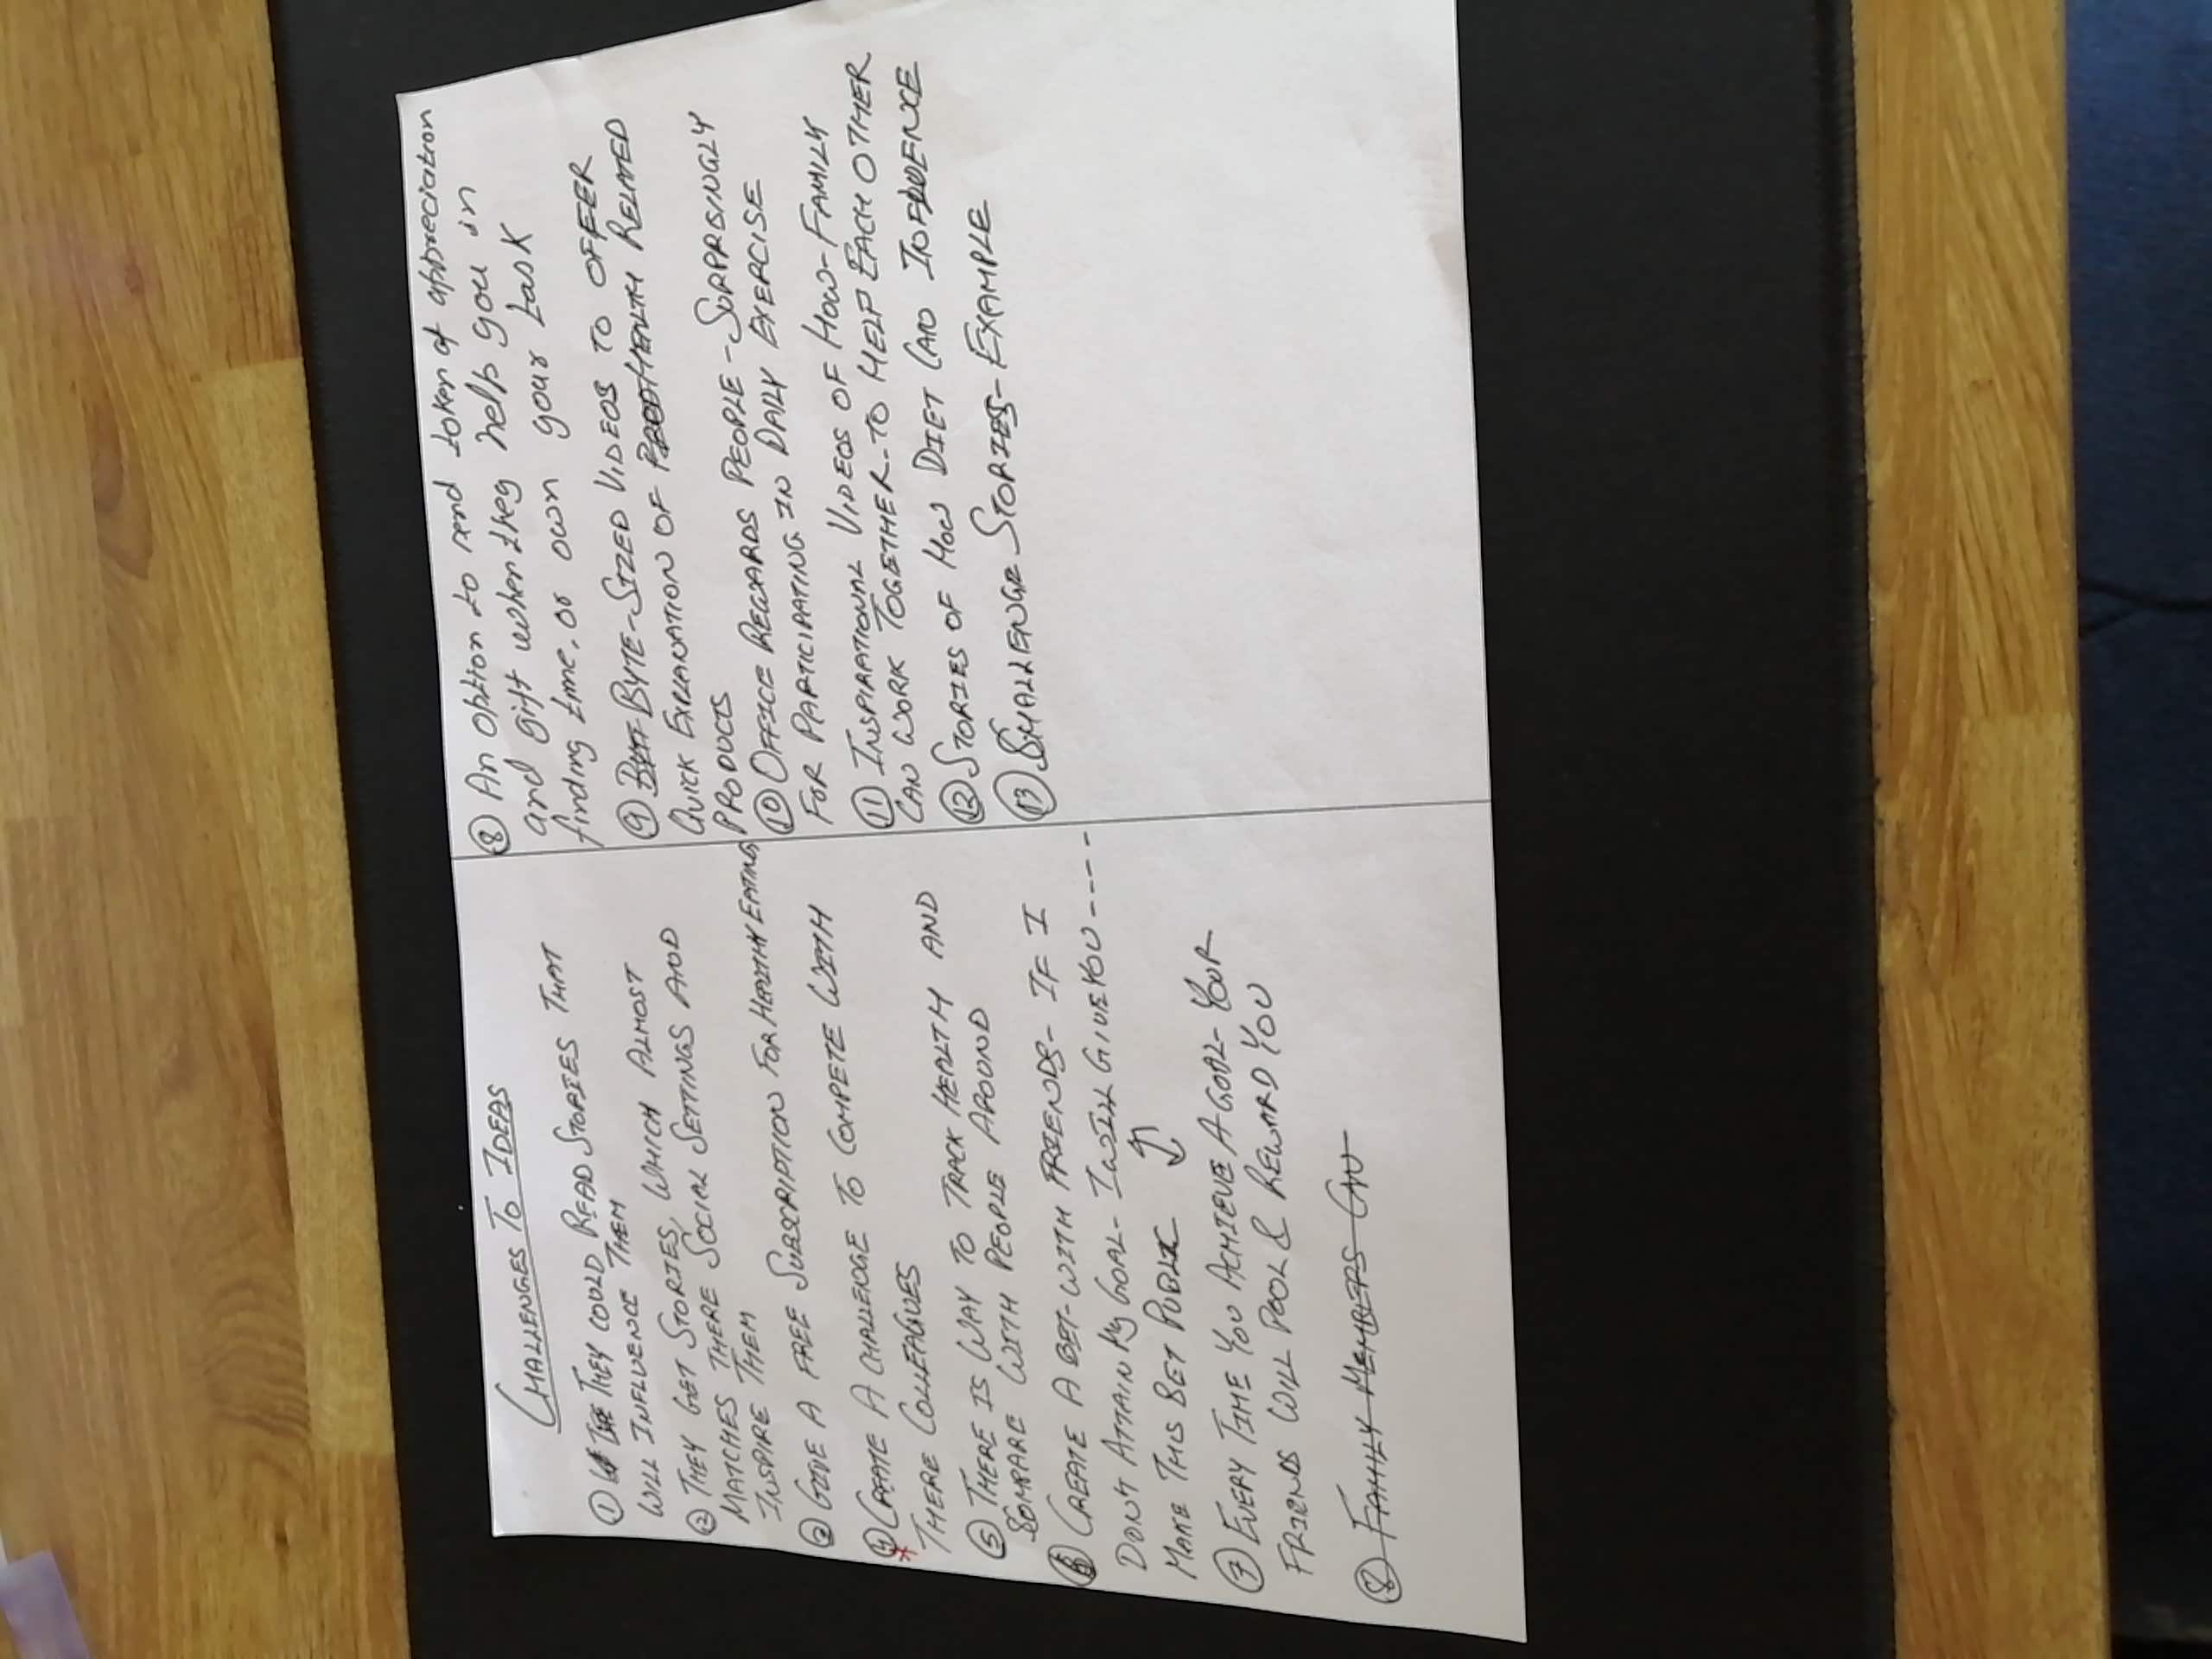 CHALLENGES TO IDEAS
① THEY COULD READ STORIES THAT
WILL INFLUENCE THEM
② THEY GET STORIES, WHICH ALMOST
MATCHES THERE SOCIAL SETTINGS AND
INSPIRE THEM
③ GIVE A FREE SUBSCRIPTION FOR HEALTHY EATING
④ CREATE A CHALLENGE TO COMPETE WITH
THERE COLLEAGUES
⑤ THERE IS WAY TO TRACK HEALTH AND
COMPARE WITH PEOPLE AROUND
⑥ CREATE A BET-WITH FRIENDS- IF I
DON'T ATTAIN My GOAL- I WILL GIVE YOU ----
MAKE THIS BET PUBLIC
⑦ EVERY TIME YOU ACHIEVE A GOAL- YOUR
FRIENDS WILL POOL & REWARD YOU
⑧ FAMILY MEMBERS CAN
⑧ An option to send token of appreciation
and gift when they help you in
finding time, or own your task
⑨ BYTE-SIZED VIDEOS TO OFFER
QUICK EXPLANATION OF HEALTH RELATED
PRODUCTS
⑩ OFFICE REWARDS PEOPLE - SURPRISINGLY
FOR PARTICIPATING IN DAILY EXERCISE
⑪ INSPIRATIONAL VIDEOS OF HOW- FAMILY
CAN WORK TOGETHER-TO HELP EACH OTHER
⑫ STORIES OF HOW DIET CAN INFLUENCE
⑬ CHALLENGE STORIES- EXAMPLE